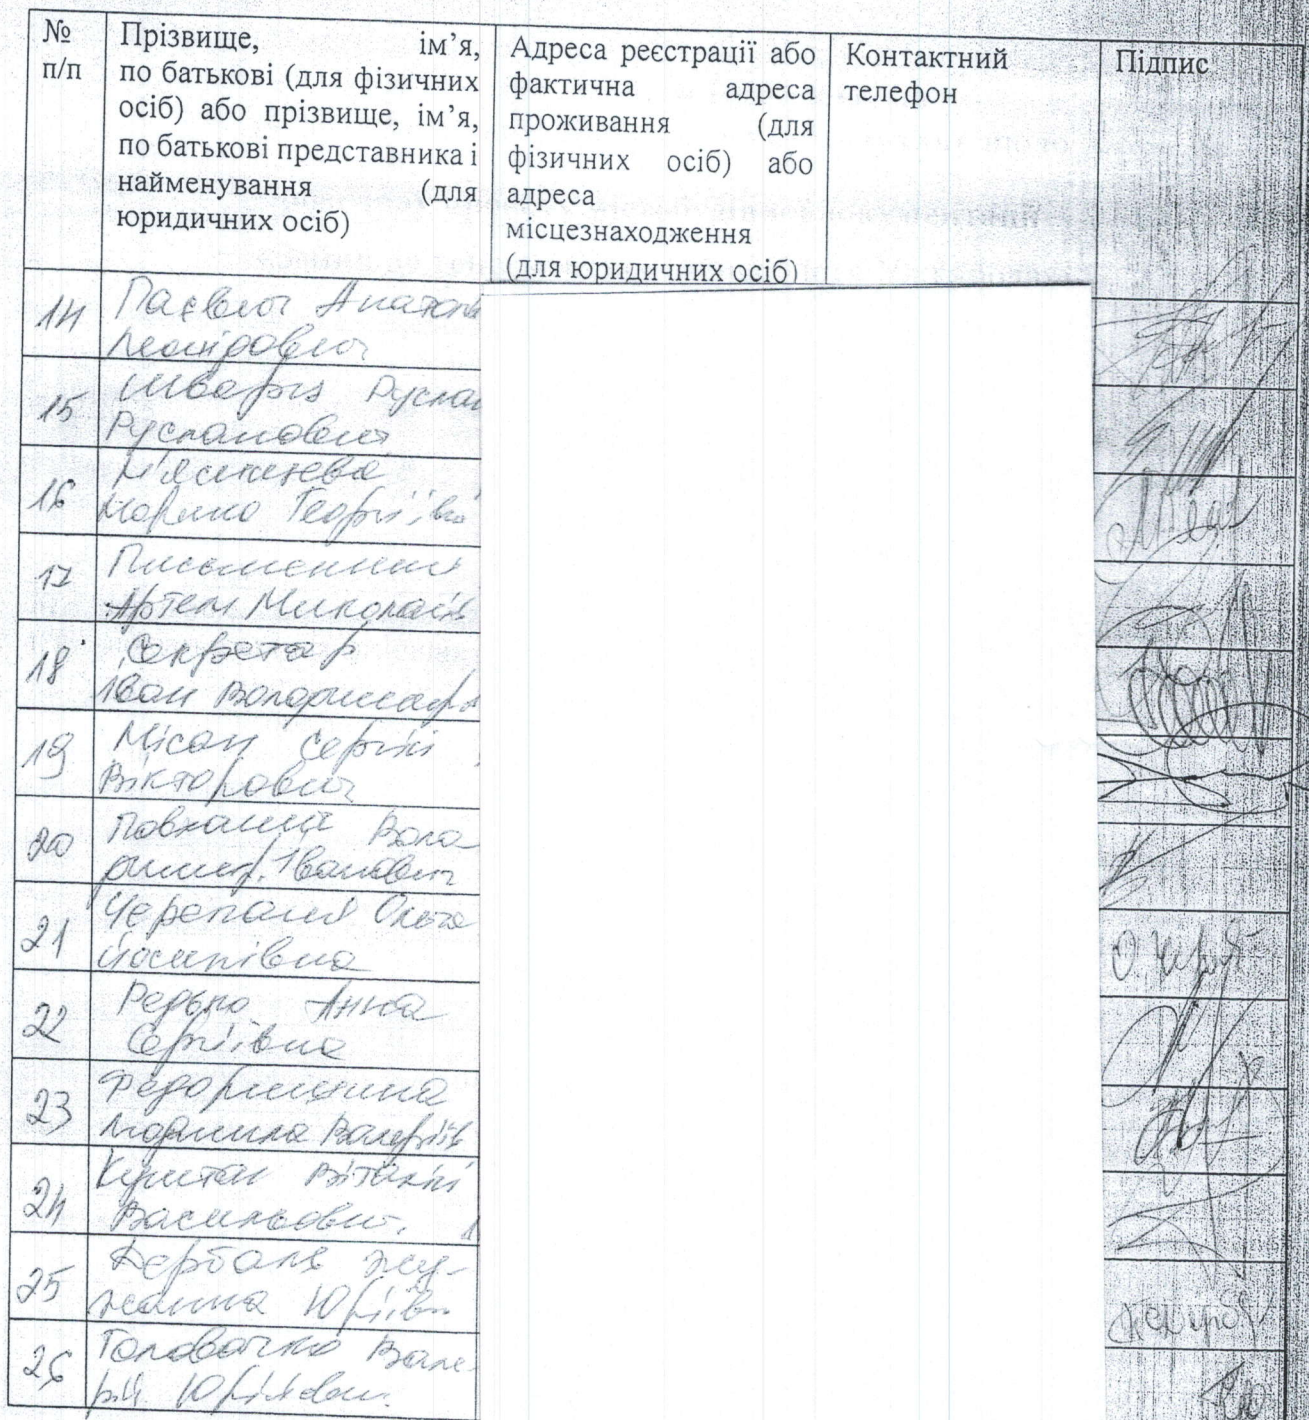 № п/п
Прізвище, ім’я,
по батькові (для фізичних
осіб) або прізвище, ім’я,
по батькові представника і
найменування (для
юридичних осіб)
Адреса реєстрації або
фактична адреса
проживання (для
фізичних осіб) або
адреса
місцезнаходження
(для юридичних осіб)
Контактний
телефон
Підпис
14
Анатолі
Леонідович
15
Шварц Руслан
Русланович
16
М'яснікєва
Георгіївна
17
Письменний
Артем Миколайов
18
Секретар
Іван Володимиро
19
Місан Сергій
Вікторович
20
Воло
димир Іванович
21
Черепаня Ольга
Йосипівна
22
Редько Анна
Сергіївна
23
Федоришина
Людмила Валеріїв
24
Віталій
Васильович
25
Юріївн
26
Головачко Вале
рій Юрійович